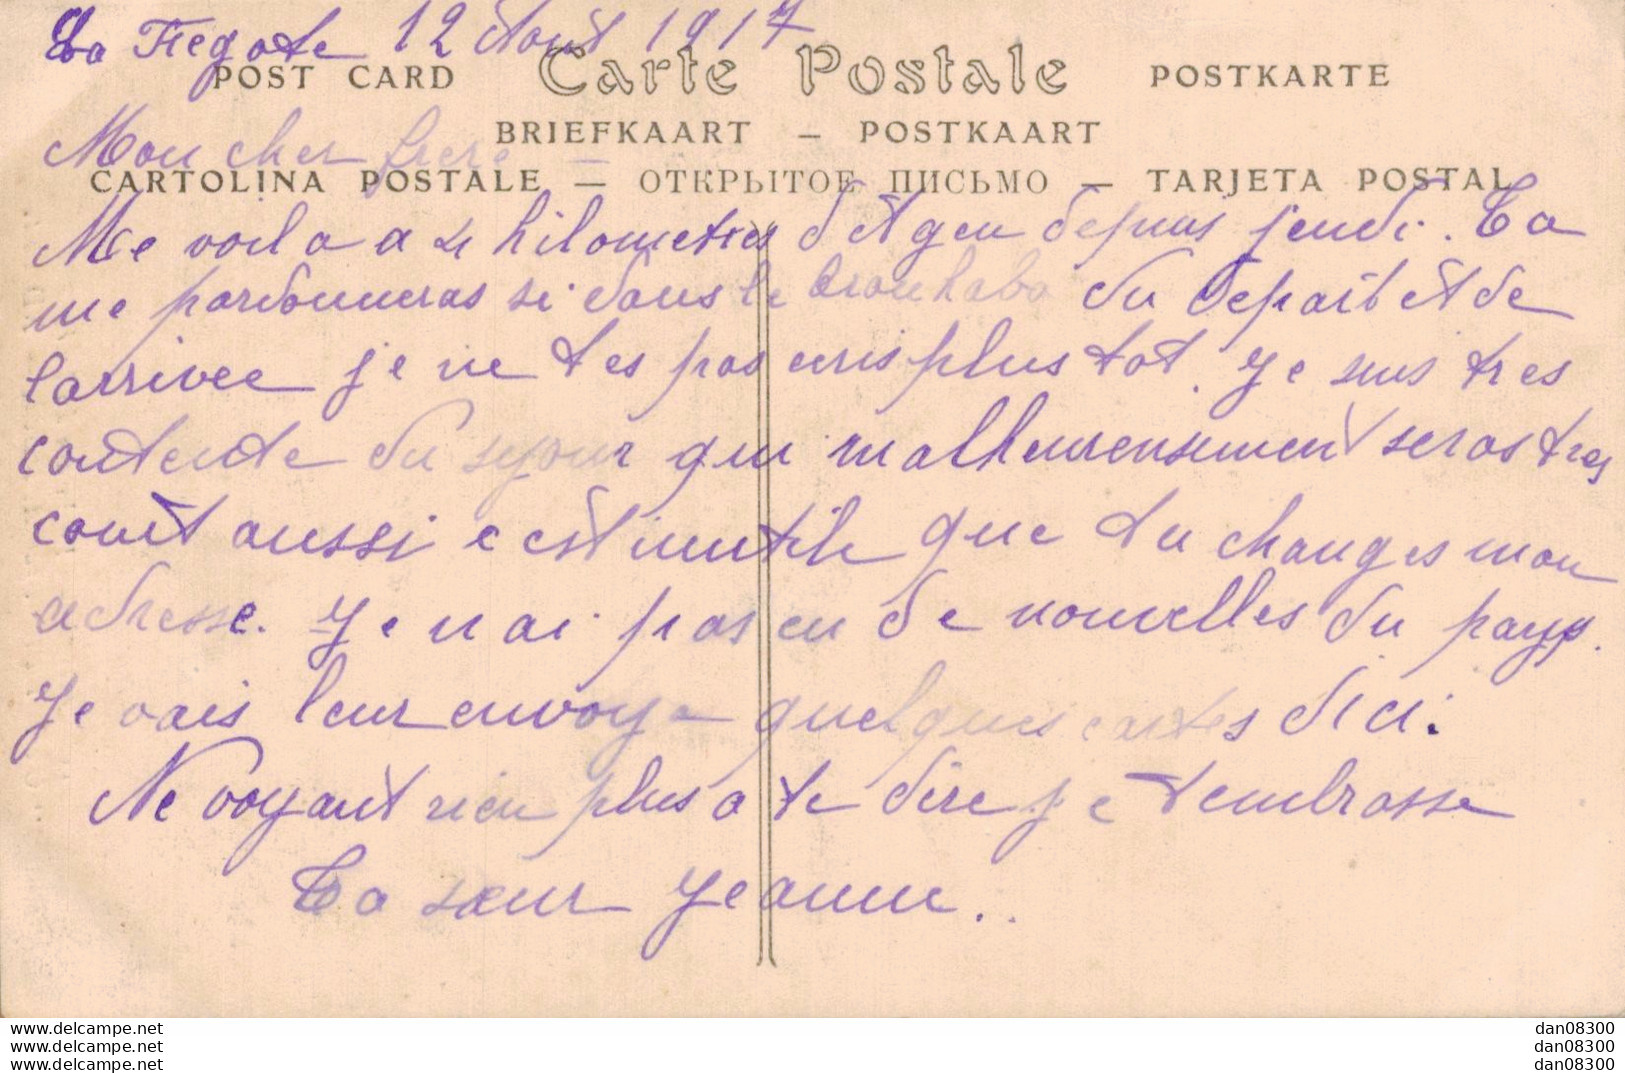 La Fregate 12 Août 1917
POST CARD Carte Postale POSTKARTE
BRIEFKAART – POSTKAART
Mon cher frere –
CARTOLINA POSTALE – ОТКРЫТОЕ ПИСЬМО – TARJETA POSTAL
Me voila a 4 kilometres d Agen depuis jeudi. Ta
me pardonneras si dans le brouhaha du depart et de
larrivee je ne tes pas ecris plus tot. Je suis tres
contente du sejour qui malheureusement seras tres
court aussi c est inutile que tu changes mon
adresse. Je n ai pas eu de nouvelles du pays.
Je vais leur envoye quelques cartes dici.
Ne voyant rien plus a te dire je t embrasse
Ta sœur Jeanne..
www.delcampe.net
www.delcampe.net
www.delcampe.net
dan08300
dan08300
dan08300